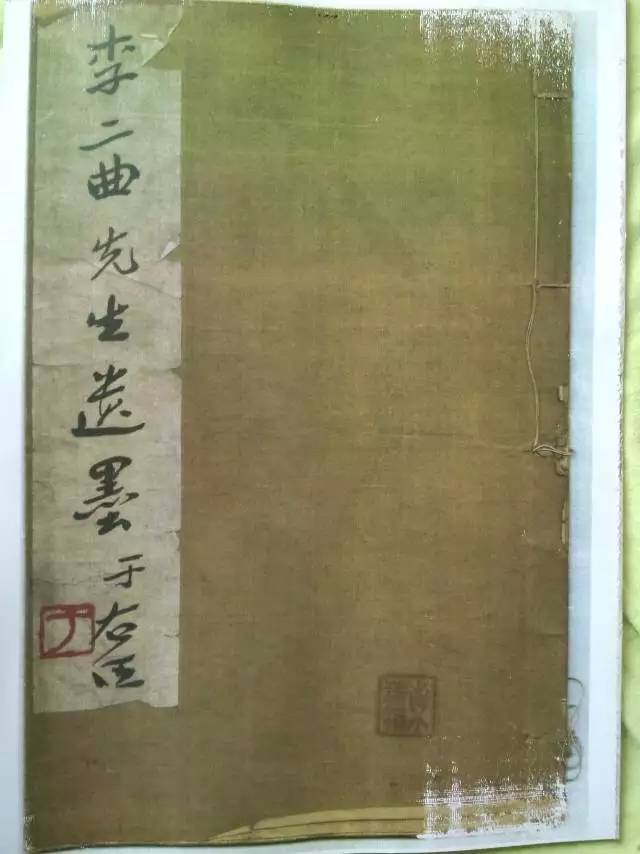 李二曲先生遗墨
于右任